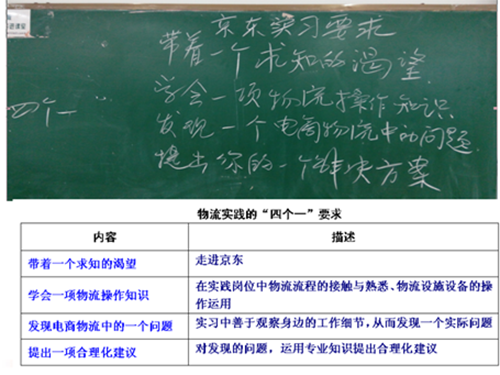 京东实习要求
带着一个求知的渴望
学会一项物流操作知识
四个一
发现一个电商物流中的问题
提出你的一个解决方案
物流实践的“四个一”要求
内容 描述
带着一个求知的渴望 走进京东
学会一项物流操作知识 在实践岗位中物流流程的接触与熟悉、物流设施设备的操
作运用
发现电商物流中的一个问题 实习中善于观察身边的工作细节，从而发现一个实际问题
提出一项合理化建议 对发现的问题，运用专业知识提出合理化建议